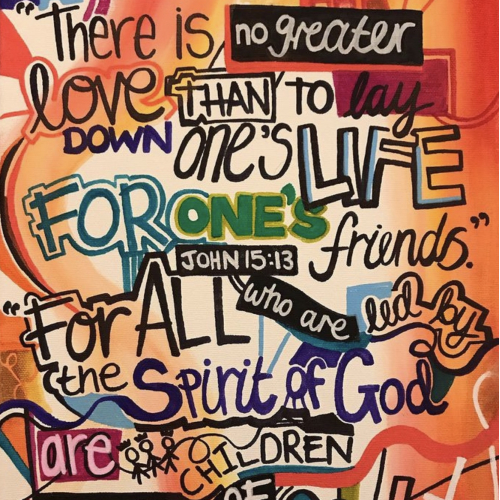 "There is no greater
love THAN TO lay
DOWN one's LIFE
FOR ONE'S
friends."
JOHN 15:13
"For ALL who are led by
the Spirit of God
are CHILDREN
OF